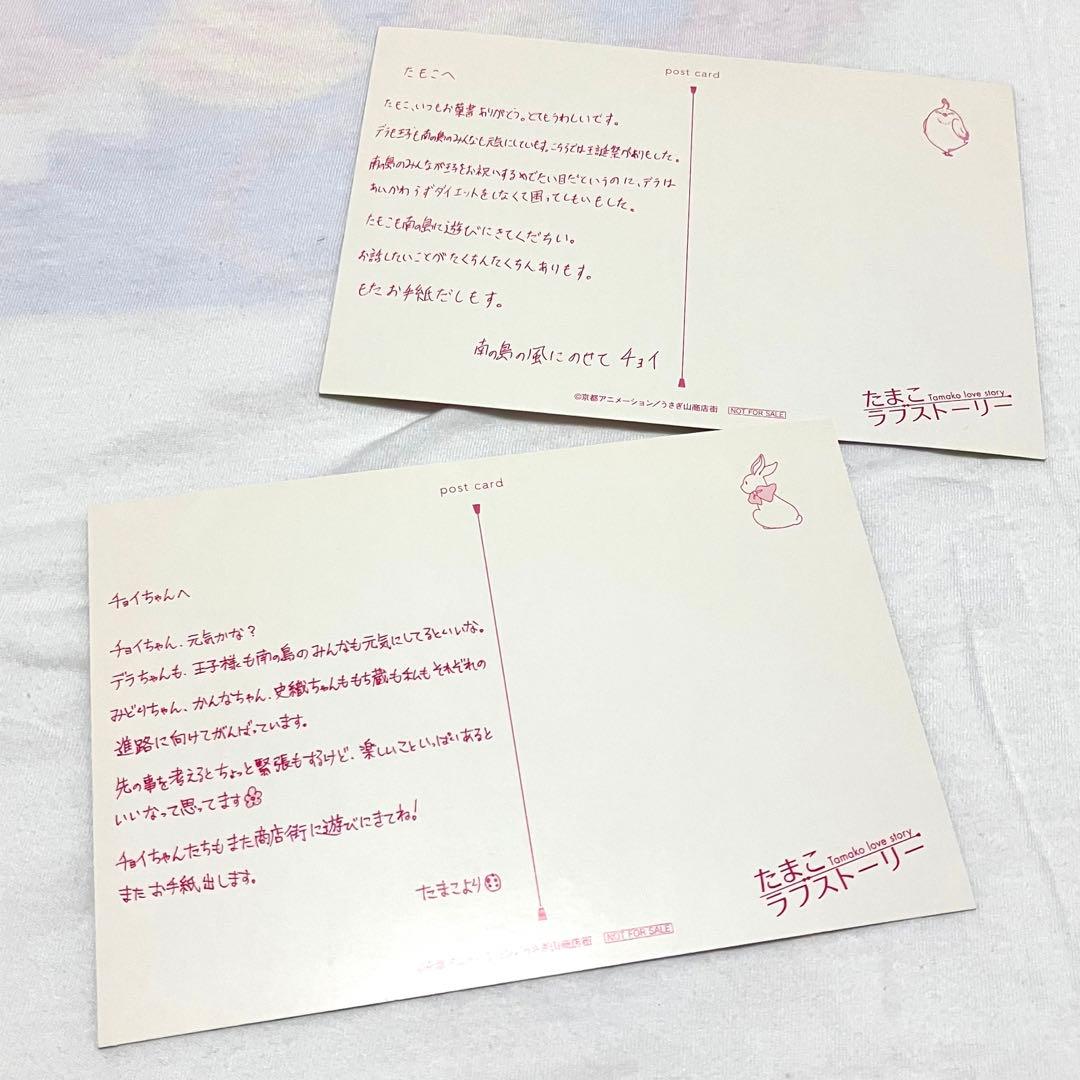 post card
たもこへ
たもこ、いつもお葉書ありがとう。とてもうわしいです。
デラも王子も南の島のみんなも元気にしていもす。こちらでは王誕祭がありもした。
南の島のみんなが王子をお祝いするめでたい日だというのに、デラは
あいかわうずダイエットをしなくて困ってしもいもした。
たもこも南の島に遊びにきてくだちい。
お話したいことがたくちんたくちんありもす。
もたお手紙だしもす。
南の島の風にのせて チョイ
©京都アニメーション/うさぎ山商店街 NOT FOR SALE
たまこ Tamako love story
ラブストーリー
post card
チョイちゃんへ
チョイちゃん、元気かな?
デラちゃんも、王子様も南の島のみんなも元気にしてるといいな。
みどりちゃん、かんなちゃん、史織ちゃんももち蔵も私もそれぞれの
進路に向けてがんばっています。
先の事を考えるとちょっと緊張もするけど、楽しいこといっぱいあると
いいなって思ってます
チョイちゃんたちもまた商店街に遊びにきてね!
またお手紙出します。
たまこより
うさぎ山商店街 NOT FOR SALE
たまこ Tamako love story
ラブストーリー